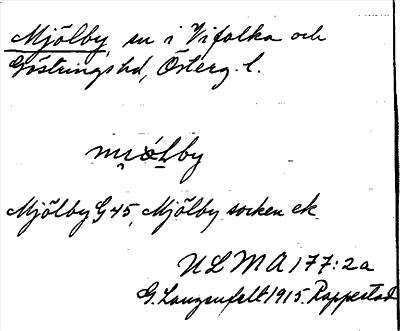 Mjölby, sn i Vifolka och
Göstringshd, Österg. l.
mjölby
Mjölby G 45, Mjölby socken ek
ULMA 177:2a
G. Langenfelt 1915. Rappestad